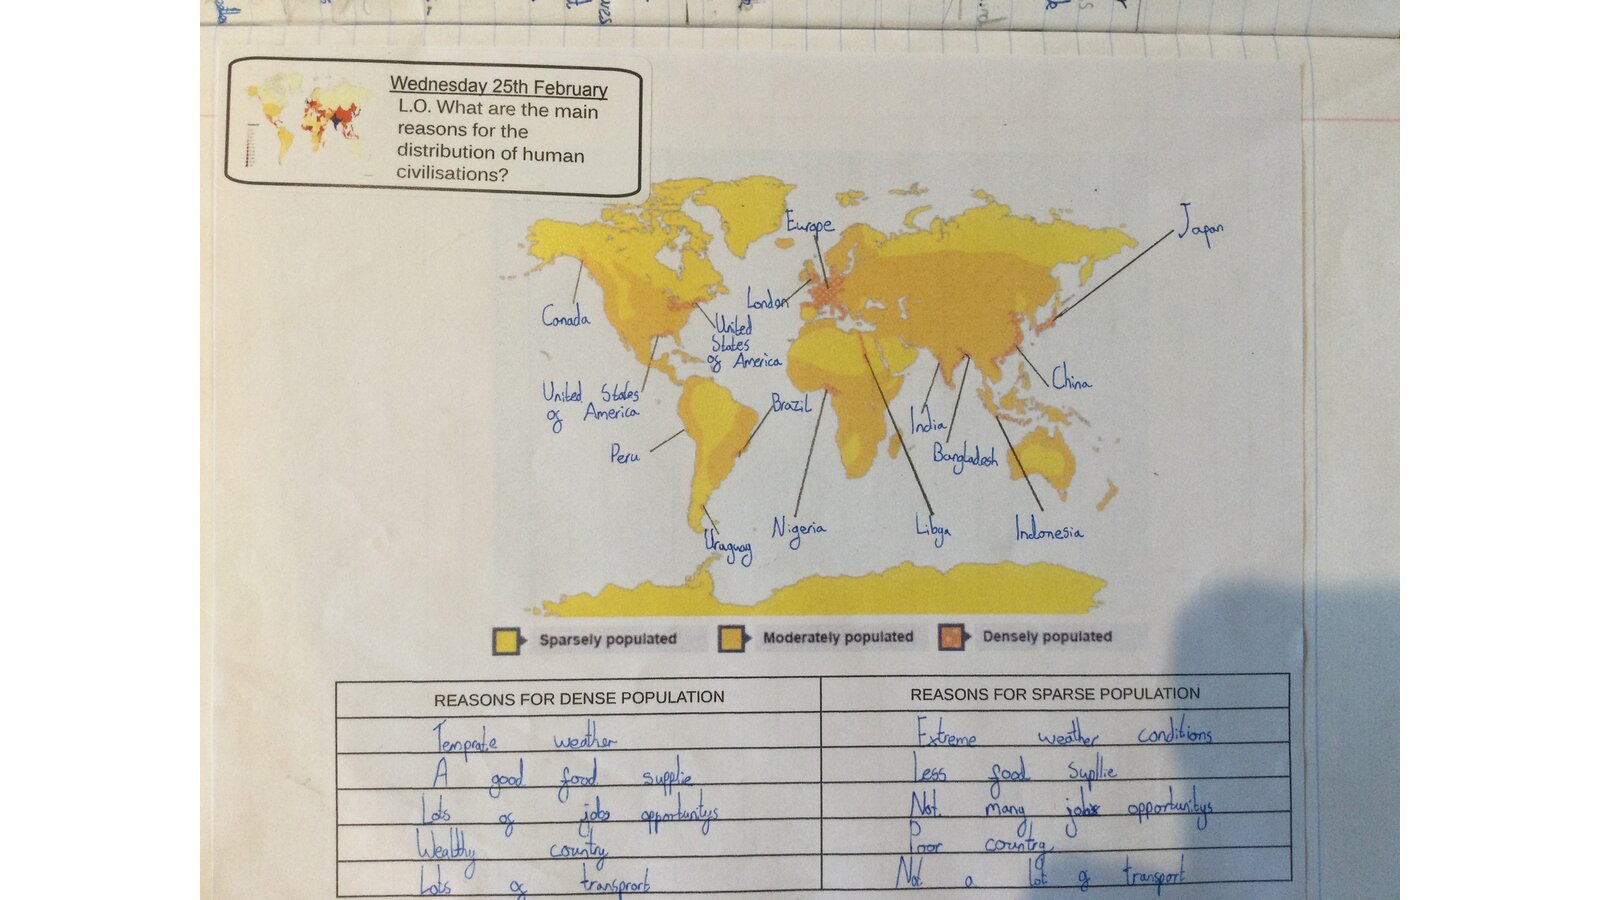 Wednesday 25th February
L.O. What are the main
reasons for the
distribution of human
civilisations?
Europe
Japan
London
Canada
United
States
of America
United States
of America
Brazil
China
India
Peru
Bangladesh
Nigeria
Libya
Indonesia
Uruguay
Sparsely populated
Moderately populated
Densely populated
REASONS FOR DENSE POPULATION
REASONS FOR SPARSE POPULATION
Temprate weather
Extreme weather conditions
A good food supplie
Less food Supllie
Lots of jobs opportunitys
Not many jobs opportunitys
Wealthy country
Poor country
Lots of transprort
Not a lot of transport